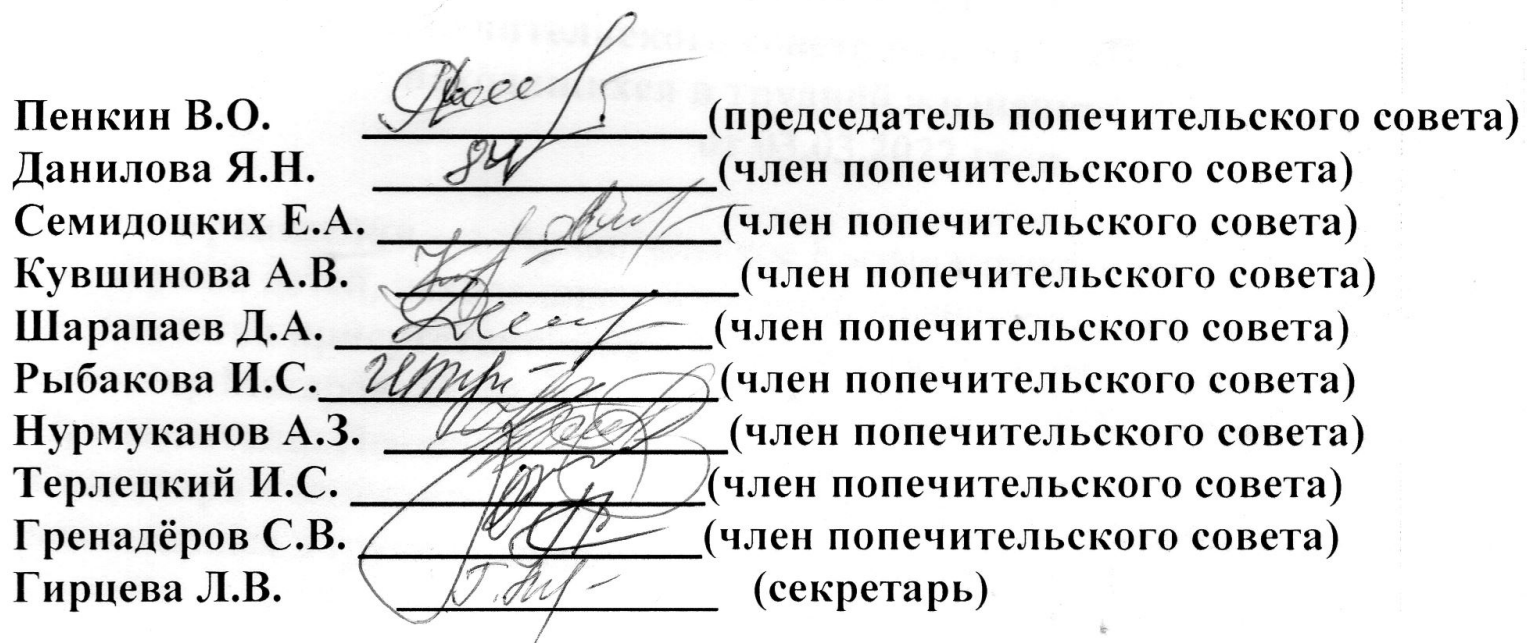 Пенкин В.О. (председатель попечительского совета)
Данилова Я.Н. (член попечительского совета)
Семидоцких Е.А. (член попечительского совета)
Кувшинова А.В. (член попечительского совета)
Шарапаев Д.А. (член попечительского совета)
Рыбакова И.С. (член попечительского совета)
Нурмуканов А.З. (член попечительского совета)
Терлецкий И.С. (член попечительского совета)
Гренадёров С.В. (член попечительского совета)
Гирцева Л.В. (секретарь)